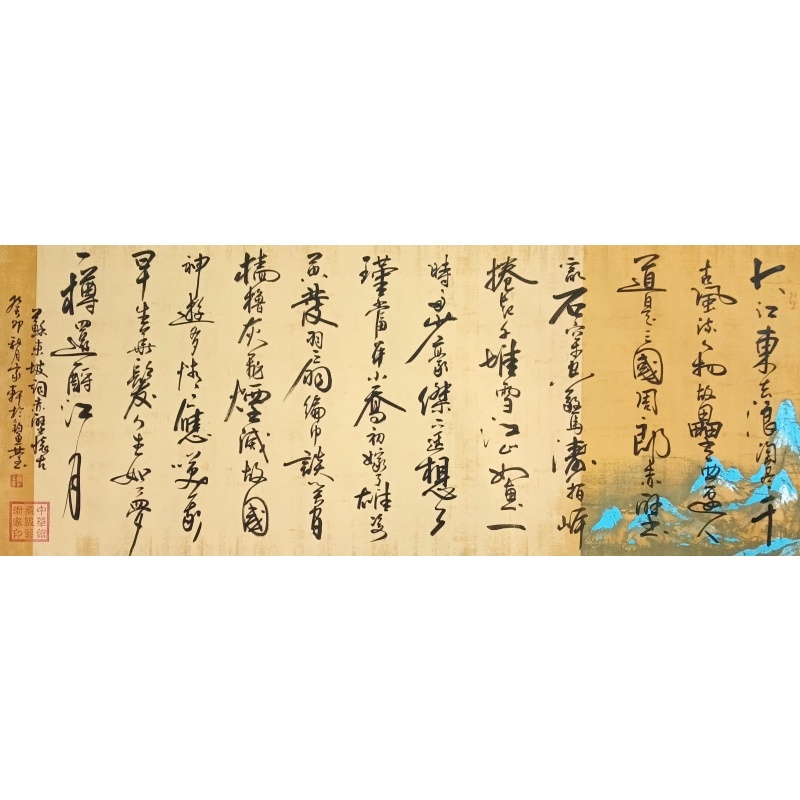 大江東去浪淘盡千
古風流人物故壘西邊人
道是三國周郎赤壁
亂石穿空驚濤拍岸
捲起千堆雪江山如畫一
時多少豪傑遥想公
瑾當年小喬初嫁了雄姿
英發羽扇綸巾談笑間
檣櫓灰飛煙滅故國
神遊多情應笑我
早生華髮人生如夢
一樽還酹江月
蘇東坡詞赤壁懷古
癸卯秋月